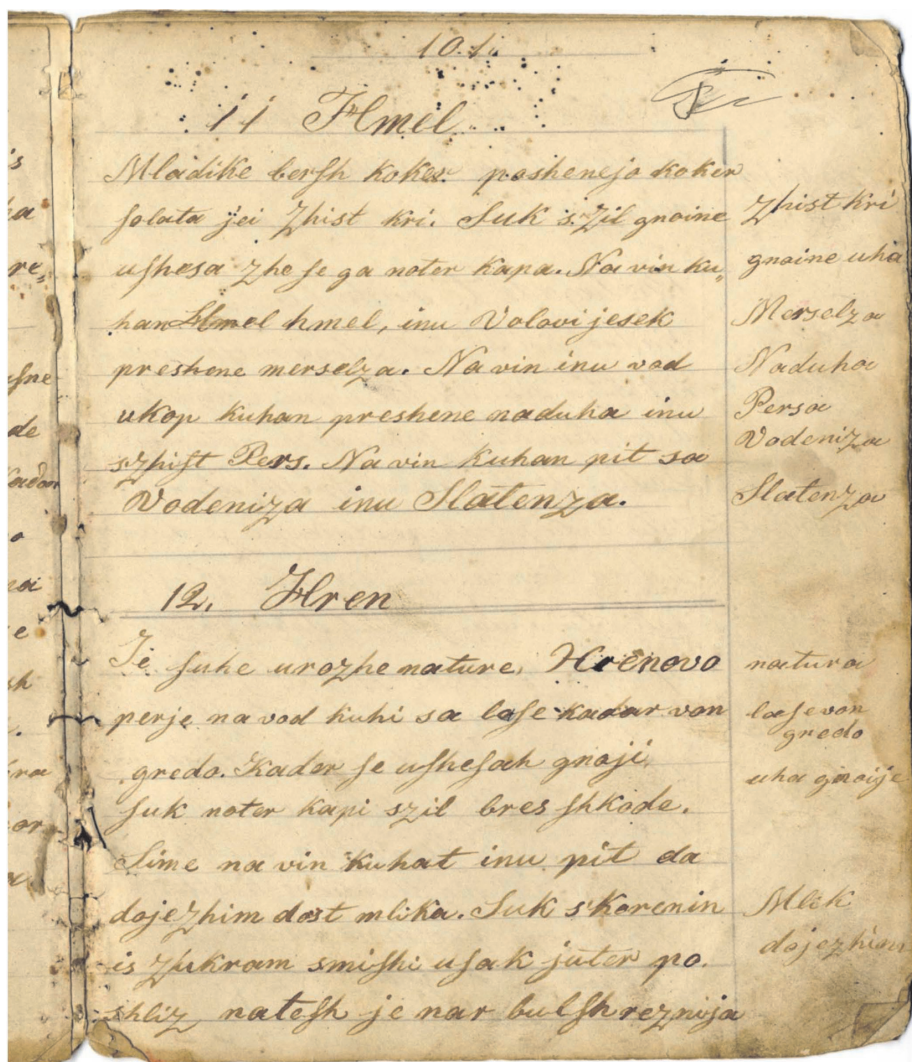 101.
11 Hmel
Mladike berſh koker poshenejo koker
ſolata jei Zhist kri. Suk s'Zil gnoine
uſhesa zhe ſe ga noter kapa. Na vin ku„
han hmel, inu Volovi jesek
preshene merselza. Na vin inu vod
ukop kuhan preshene naduha inu
szhiſt Pers. Na vin kuhan pit sa
Vodeniza inu Slatenza.
Zhist kri
gnoine uha
Merselza
Naduha
Persa
Vodeniza
Slatenza
12. Hren
Je ſuhe urozhe nature, Hrenovo
perje na vod kuhi sa laſe kadar von
gredo. Kader ſe uſheſah gnoji
ſuk noter kapi szil bres ſhkode.
Sime na vin kuhat inu pit da
dojezhim dost mlika. Suk s'korenin
is zhukram smiſhi uſak juter po.
shliz nateſh je nar bulſh reznija
natura
laſe von
gredo
uha gnoije
Mlek
dojezhim